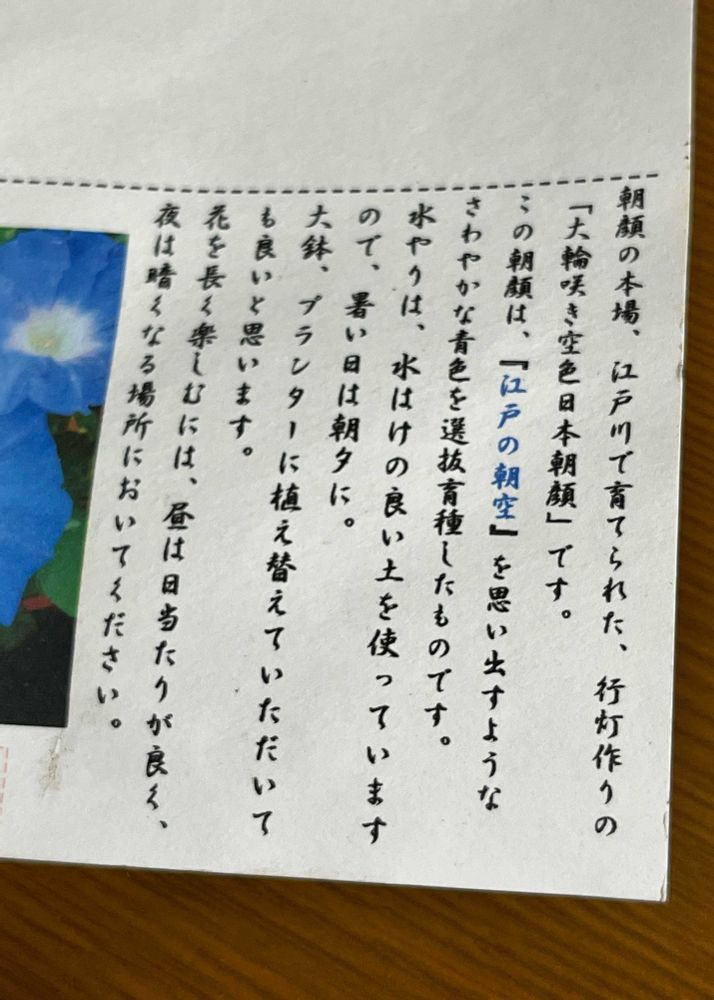 朝顔の本場、江戸川で育てられた、行灯作りの
「大輪咲き空色日本朝顔」です。
この朝顔は、『江戸の朝空』を思い出すような
さわやかな青色を選抜育種したものです。
水やりは、水はけの良い土を使っています
ので、暑い日は朝夕に。
大鉢、プランターに植え替えていただいて
も良いと思います。
花を長く楽しむには、昼は日当たりが良く、
夜は暗くなる場所においてください。